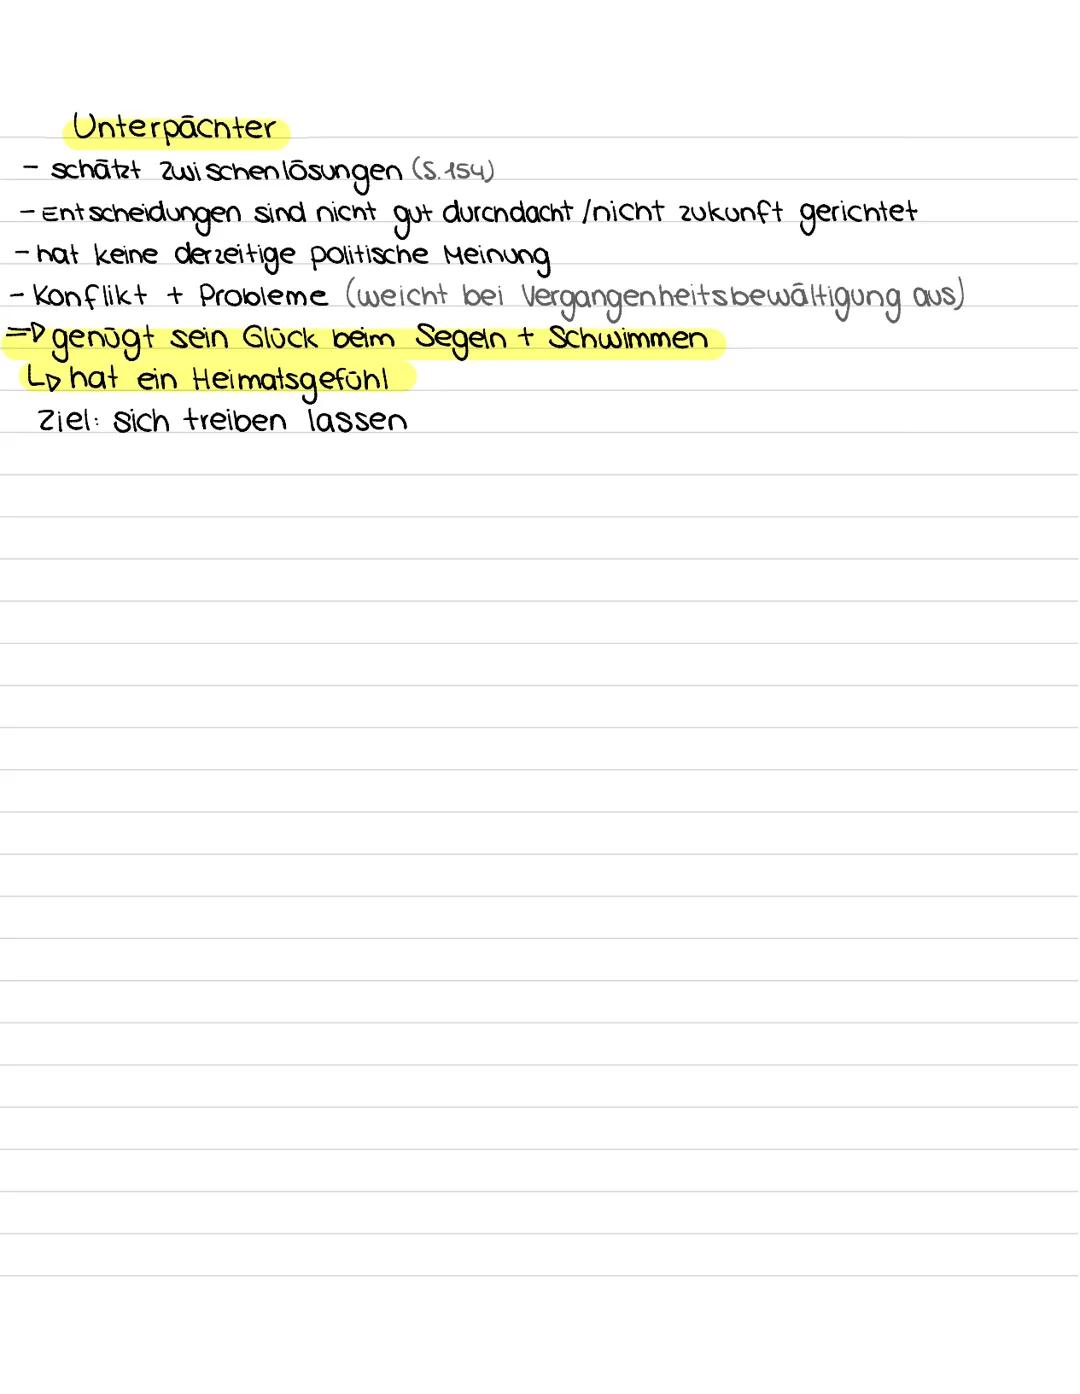 Unterpächter
- schätzt Zwischenlösungen (S.154)
- Entscheidungen sind nicht gut durchdacht /nicht zukunft gerichtet
- hat keine derzeitige politische Meinung
- Konflikt + Probleme (weicht bei Vergangenheitsbewältigung aus)
=> genügt sein Glück beim Segeln + Schwimmen
↳ hat ein Heimatsgefühl
Ziel: sich treiben lassen